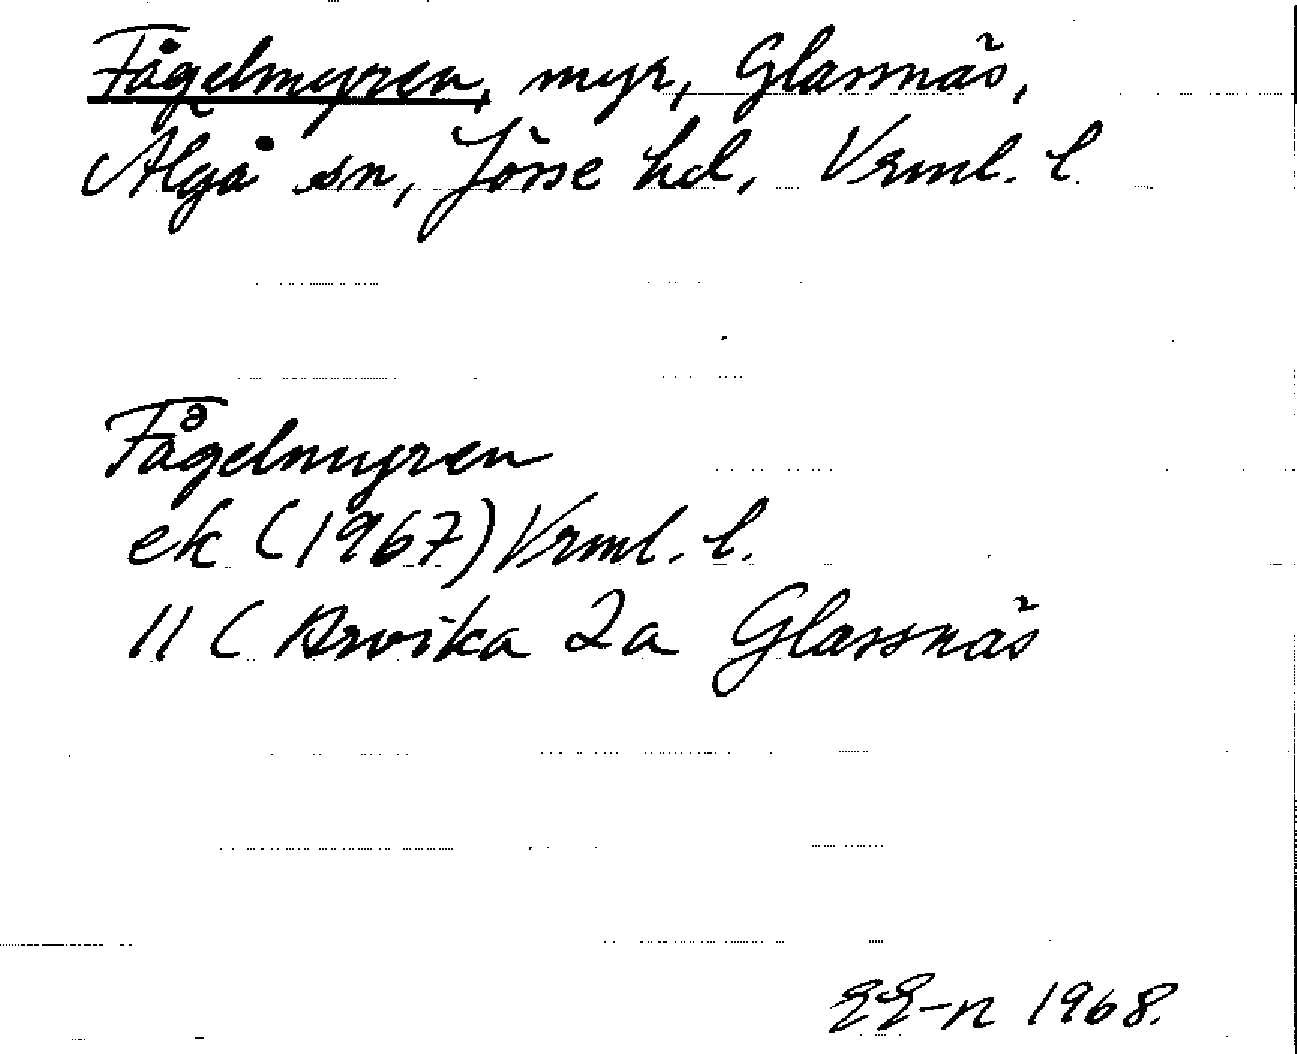 Fågelmyren, myr, Glassnäs,
Älgå sn, Jösse hd, Vrml. l.
Fågelmyren
ek (1967) Vrml. l.
11 C Arvika 2a Glassnäs
EE-n 1968.